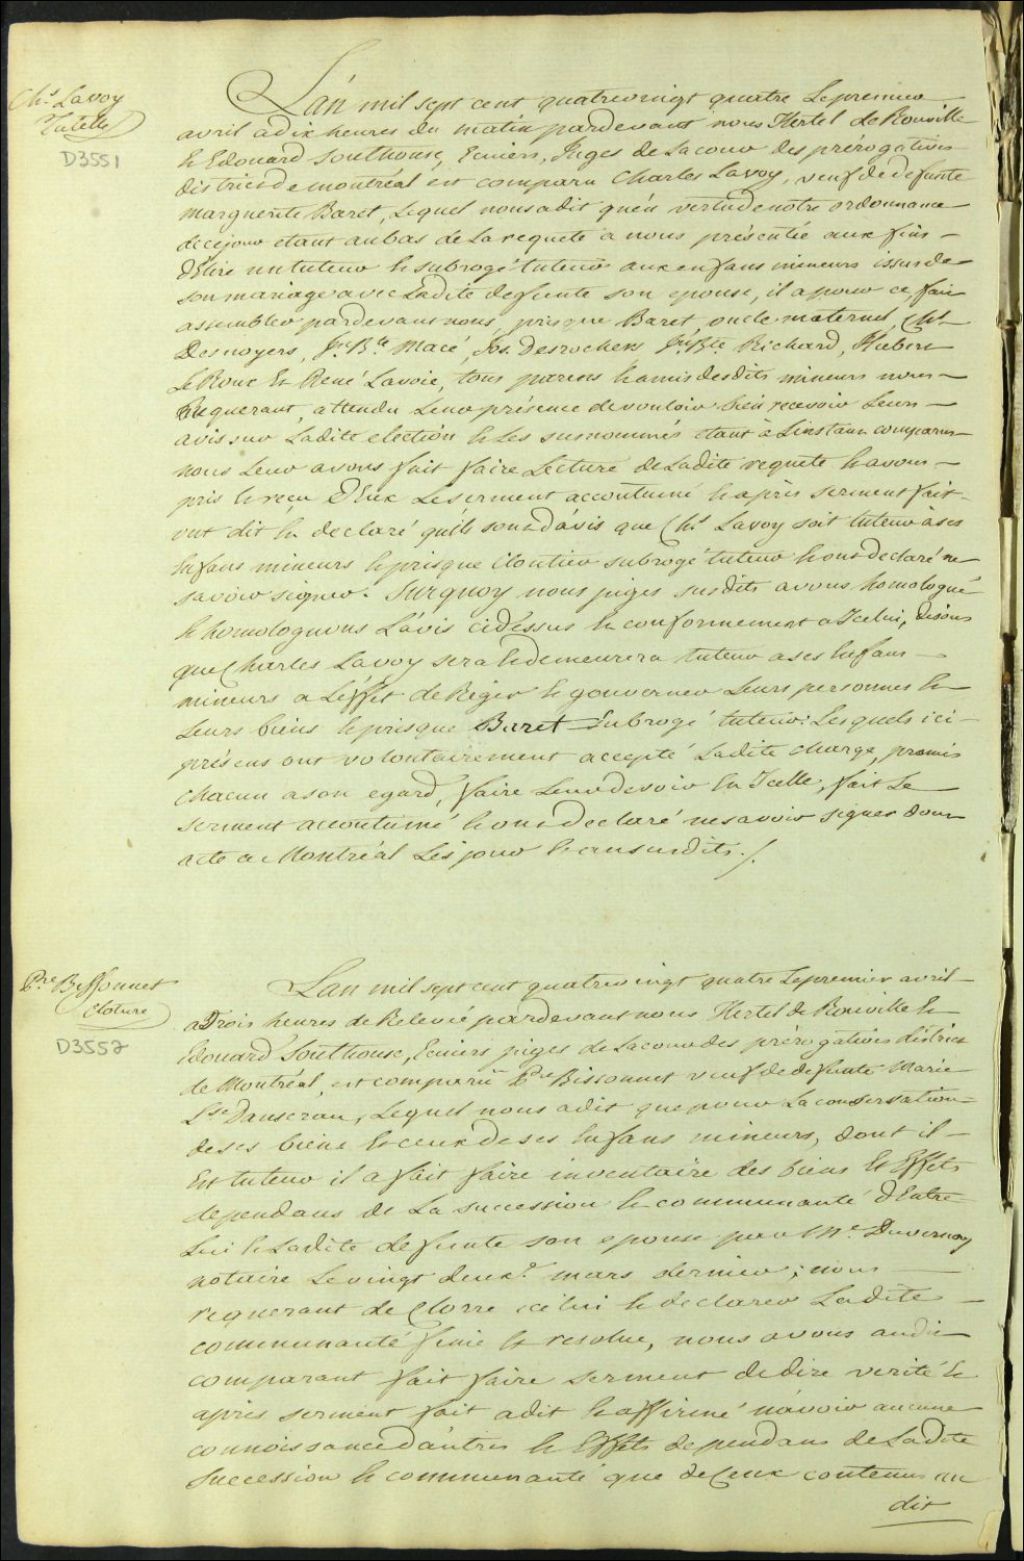 Chs. Lavoy
Tutelle
D3551
L'an mil sept cent quatrevingt quatre Le premier
avril a dix heures du matin pardevant nous Hertel de Rouville
& Edouard Southouse, Ecuiers, Juges de La cour des prérogatives
district de montréal est comparu Charles Lavoy, veuf de defunte
marguerite Baret, Lequel nous a dit qu'en vertu de notre ordonnance
de ce jour etant au bas de La requete a nous présentée aux fins
d'Elire un tuteur & subrogé tuteur aux enfans mineurs issus de
son mariage avec Ladite defunte son epouse, il a pour ce, fait
assembler pardevant nous, prisque Baret, oncle maternel, Chs.
Desnoyers, Jn. Bte. Macé, Jos. Desrochers Jn. Bte. Richard, Hubert
LeRoux Et René Lavoie, tous parens & amis desdits mineurs nous
Requerant, attendu Leur présence de vouloir bien recevoir Leurs
avis sur Ladite election & Les susnommés etant à L'instant comparus
nous Leur avons fait faire Lecture de Ladite requete & avons
pris & reçu D'Eux Le serment accoutumé & après serment fait
ont dit & declaré qu'ils sont d'avis que Chs. Lavoy soit tuteur à ses
Enfans mineurs & prisque Cloutier subrogé tuteur & ont declaré ne
savoir signer. Surquoy nous juges susdits avons homologué
& homologuons L'avis cidessus & conformement a Icelui, disons
que Charles Lavoy sera & demeurera tuteur a ses Enfans
mineurs a L'effet de Régir & gouverner Leurs personnes &
Leurs biens & prisque Baret subrogé tuteur: Lesquels ici
présens ont volontairement accepté Ladite charge, promis
chacun a son egard, faire Leur devoir En Icelle, fait Le
serment accoutumé & ont declaré ne savoir signer dont
acte a Montréal Les jour & an susdits./.
Pre. Bissonnet
Cloture
D3557
L'an mil sept cent quatrevingt quatre Le premier avril
a Trois heures de Relevée pardevant nous Hertel de Rouville &
Edouard Southouse, Ecuiers juges de La cour des prérogatives district
de Montréal, est comparu Pre. Bissonnet veuf de defunte Marie
Lse. Dansereau, Lequel nous a dit que pour La conservation
de ses biens & ceux de ses Enfans mineurs, dont il
Est tuteur il a fait faire inventaire des biens & Effets
dependans de La succession & communauté d'Entre
Lui & Ladite defunte son epouse par Me. Duvernay
notaire Le vingt deuxe. mars dernier; nous
requerant de Clorre icelui & declarer Ladite
communauté finie & resolue, nous avons audit
comparant fait faire serment de dire verité &
après serment fait a dit & affirmé n'avoir aucune
connoissance d'autres & Effets dependans de Ladite
Succession & communauté que de Ceux contenus au
dit